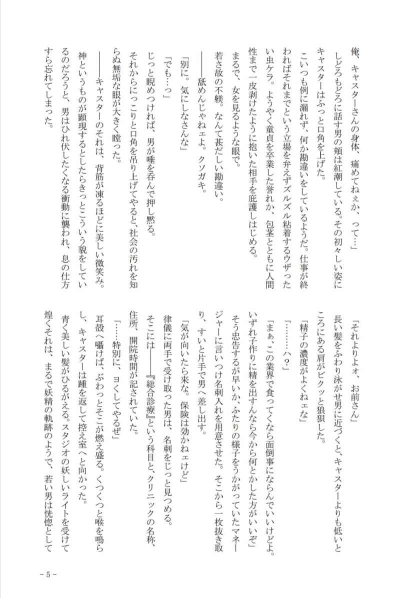 俺、キャスターさんの身体、痛めてねぇか、って…」
しどろもどろに話す男の頬は紅潮している。その初々しい姿に
キャスターはふっと口角を上げた。
こいつも例に漏れず、何か勘違いをしているようだ。仕事が終
わればそれまでという立場を弁えずズルズル粘着するウザった
い虫ケラ。ようやく童貞を卒業した誉れか、包茎とともに人間
性まで一皮剥けたように抱いた相手を庇護しはじめる。
まるで、女を見るような眼で。
若さ故の不躾。なんて甚だしい勘違い。
――舐めんじゃねェよ、クソガキ。
「別に。気にしなさんな」
「でも…っ」
じっと眺めつければ、男が唾を呑んで押し黙る。
それからにっこりと口角を吊り上げてやると、社会の汚れを知
らぬ無垢な眼が大きく瞠った。
――キャスターのそれは、背筋が凍るほどに美しい微笑み。
神というものが顕現するとしたらきっとこういう貌をしてい
るのだろうと、男はひれ伏したくなる衝動に襲われ、息の仕方
すら忘れてしまった。
「それよりよォ、お前さん」
長い髪をふわり泳がせ男に近づくと、キャスターよりも低いと
ころにある肩がビクッと狼狽した。
「精子の濃度がよくねェな」
「……ハ？」
「まぁ、この業界で食ってくなら面倒事にならんでいいけどよ。
いずれ子作りに精を出すんなら今から何とかした方がいいぞ」
そう忠告するが早いか、ふたりの様子をうかがっていたマネー
ジャーに言いつけ名刺入れを用意させた。そこから一枚抜き取
り、すいと片手で男へ差し出す。
「気が向いたら来な。保険は効かねェけど」
律儀に両手で受け取った男は、名刺をじっと見つめる。
そこには――『総合診療』という科目と、クリニックの名称、
住所、開院時間が記されていた。
「……特別に、ヨくしてやるぜ」
耳殻へ囁けば、ぶわっとそこが燃え盛る。くつくつと喉を鳴ら
し、キャスターは踵を返して控え室へと向かった。
青く美しい髪がひるがえる。スタジオの妖しいライトを受けて
煌くそれは、まるで妖精の軌跡のようで、若い男は恍惚として
- 5 -